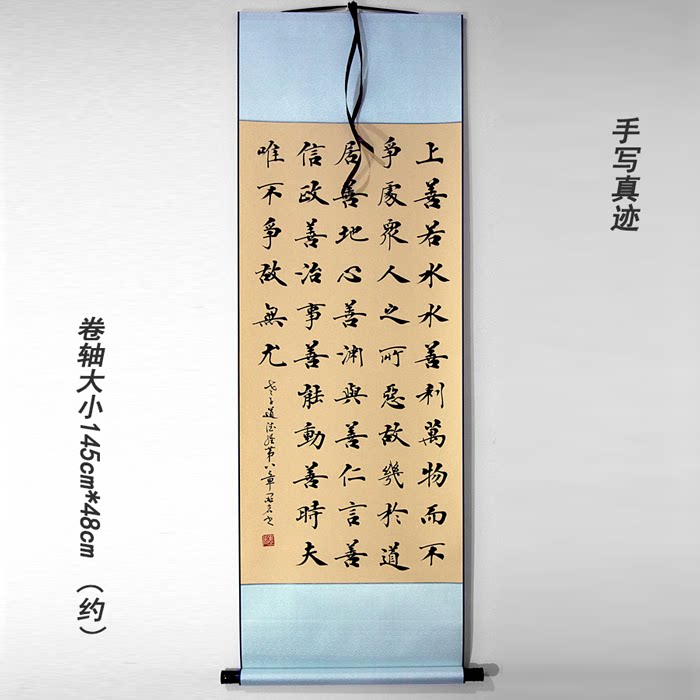 手写真迹
上善若水水善利萬物而不
爭處衆人之所惡故幾於道
居善地心善淵與善仁言善
信政善治事善能動善時夫
唯不爭故無尤
老子道德經第八章
卷轴大小145cm*48cm（约）